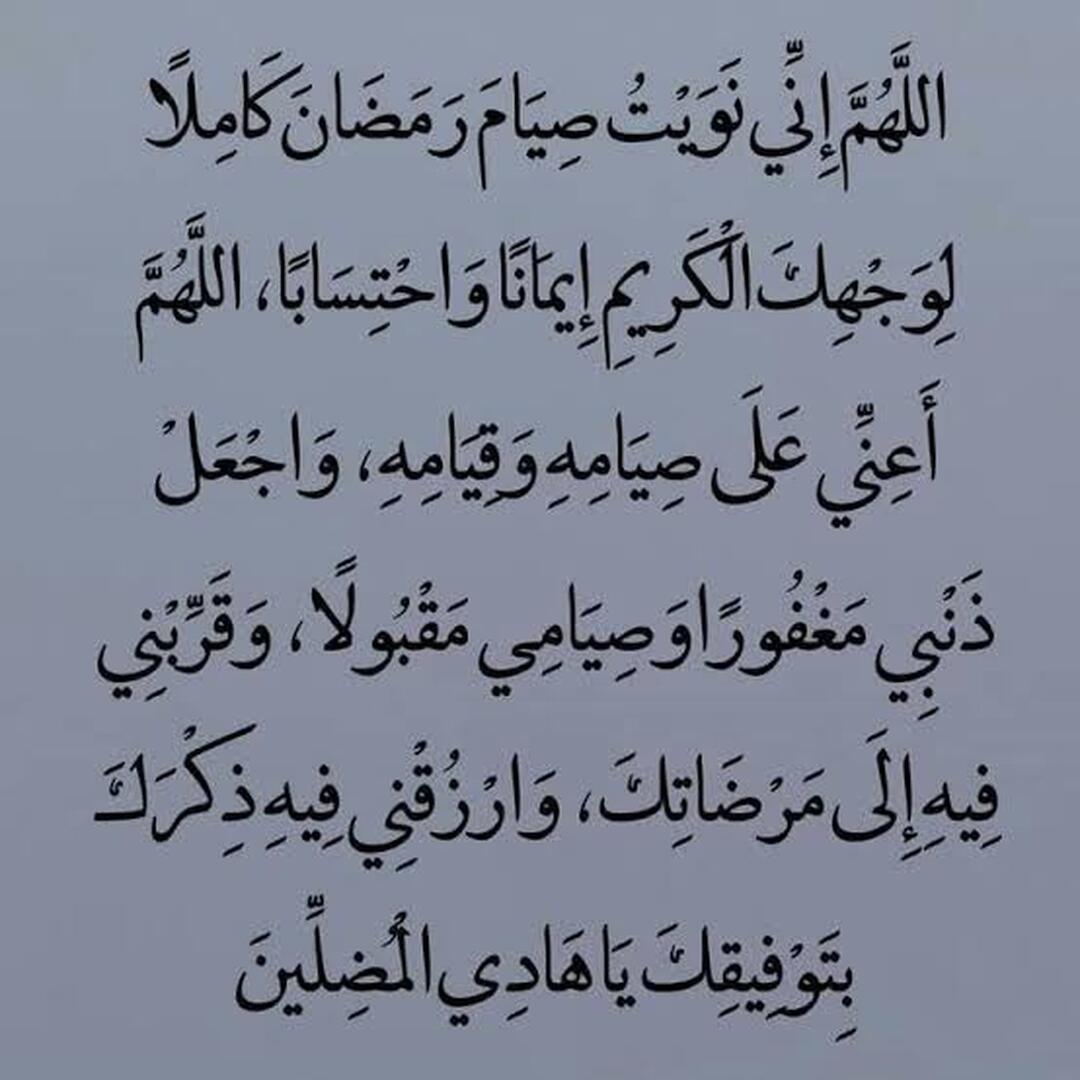 اللَّهُمَّ إِنِّي نَوَيْتُ صِيَامَ رَمَضَانَ كَامِلًا
لِوَجْهِكَ الْكَرِيمِ إِيمَانًا وَاحْتِسَابًا، اللَّهُمَّ
أَعِنِّي عَلَى صِيَامِهِ وَقِيَامِهِ، وَاجْعَلْ
ذَنْبِي مَغْفُورًا وَصِيَامِي مَقْبُولًا، وَقَرِّبْنِي
فِيهِ إِلَى مَرْضَاتِكَ، وَارْزُقْنِي فِيهِ ذِكْرَكَ
بِتَوْفِيقِكَ يَا هَادِي الْمُضِلِّينَ